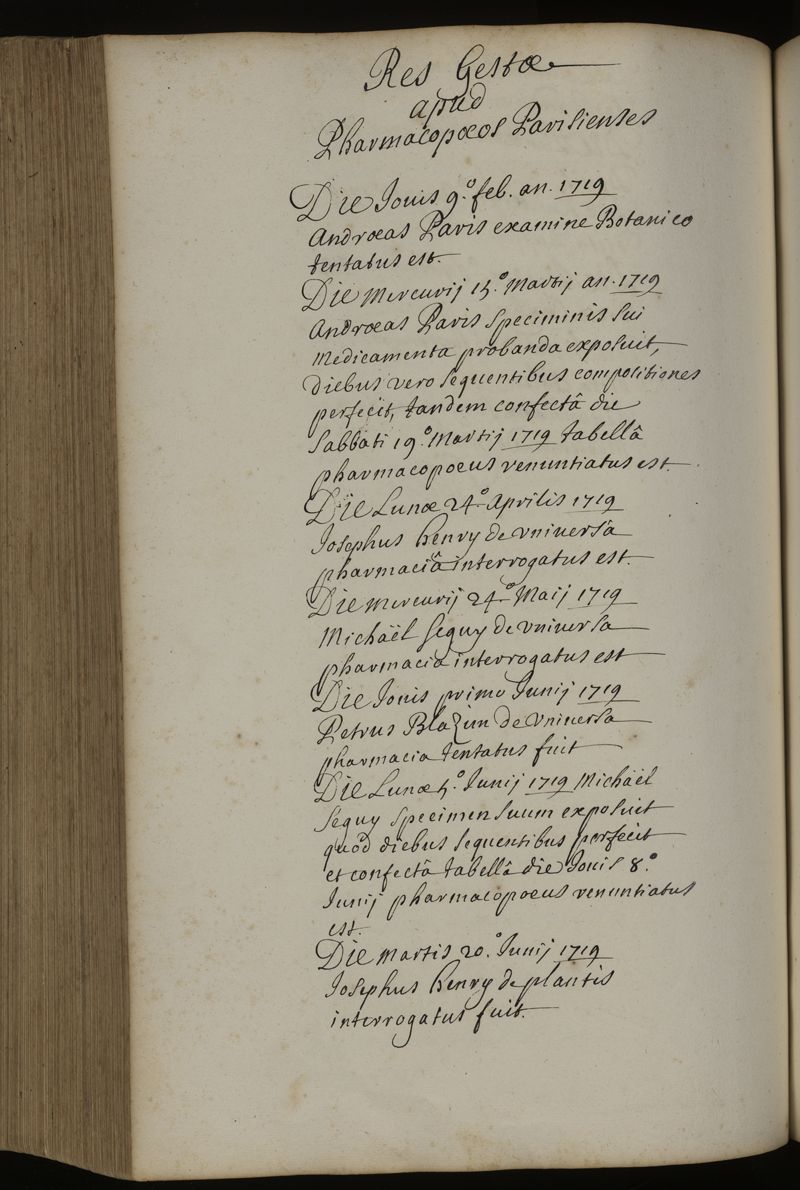 Res Gestæ
apud
Pharmacopœos Parisienses
Die Jouis 9.º feb. an. 1719
Andræas Paris examine Botanico
tentatus est.
Die Mercurij 15.º Martij an. 1719
Andræas Paris speciminis sui
Medicamenta probanda exposuit,
diebus vero sequentibus compositiones
perfecit, tandem confectâ die
Sabbati 19.º Martij 1719 tabellâ
pharmacopoeus renuntiatus est.
Die Lunæ 24.º Aprilis 1719
Josephus henry de vniversâ
pharmaciâ interrogatus est.
Die mercurij 24.º Maij 1719
Michaël Seguy de vniuersa
pharmacia interrogatus est
Die Jouis primo Junij 1719
Petrus Blazim de vniuersa
pharmacia tentatus fuit
Die Lunæ 5.º Junij 1719 Michaël
Seguy specimen suum exposuit
quod diebus sequentibus perfecit
et confectâ tabellâ die Jouis 8.º
Junij pharmacopoeus renuntiatus
est.
Die martis 20.º Junij 1719
Josephus henry de plantis
interrogatus fuit.